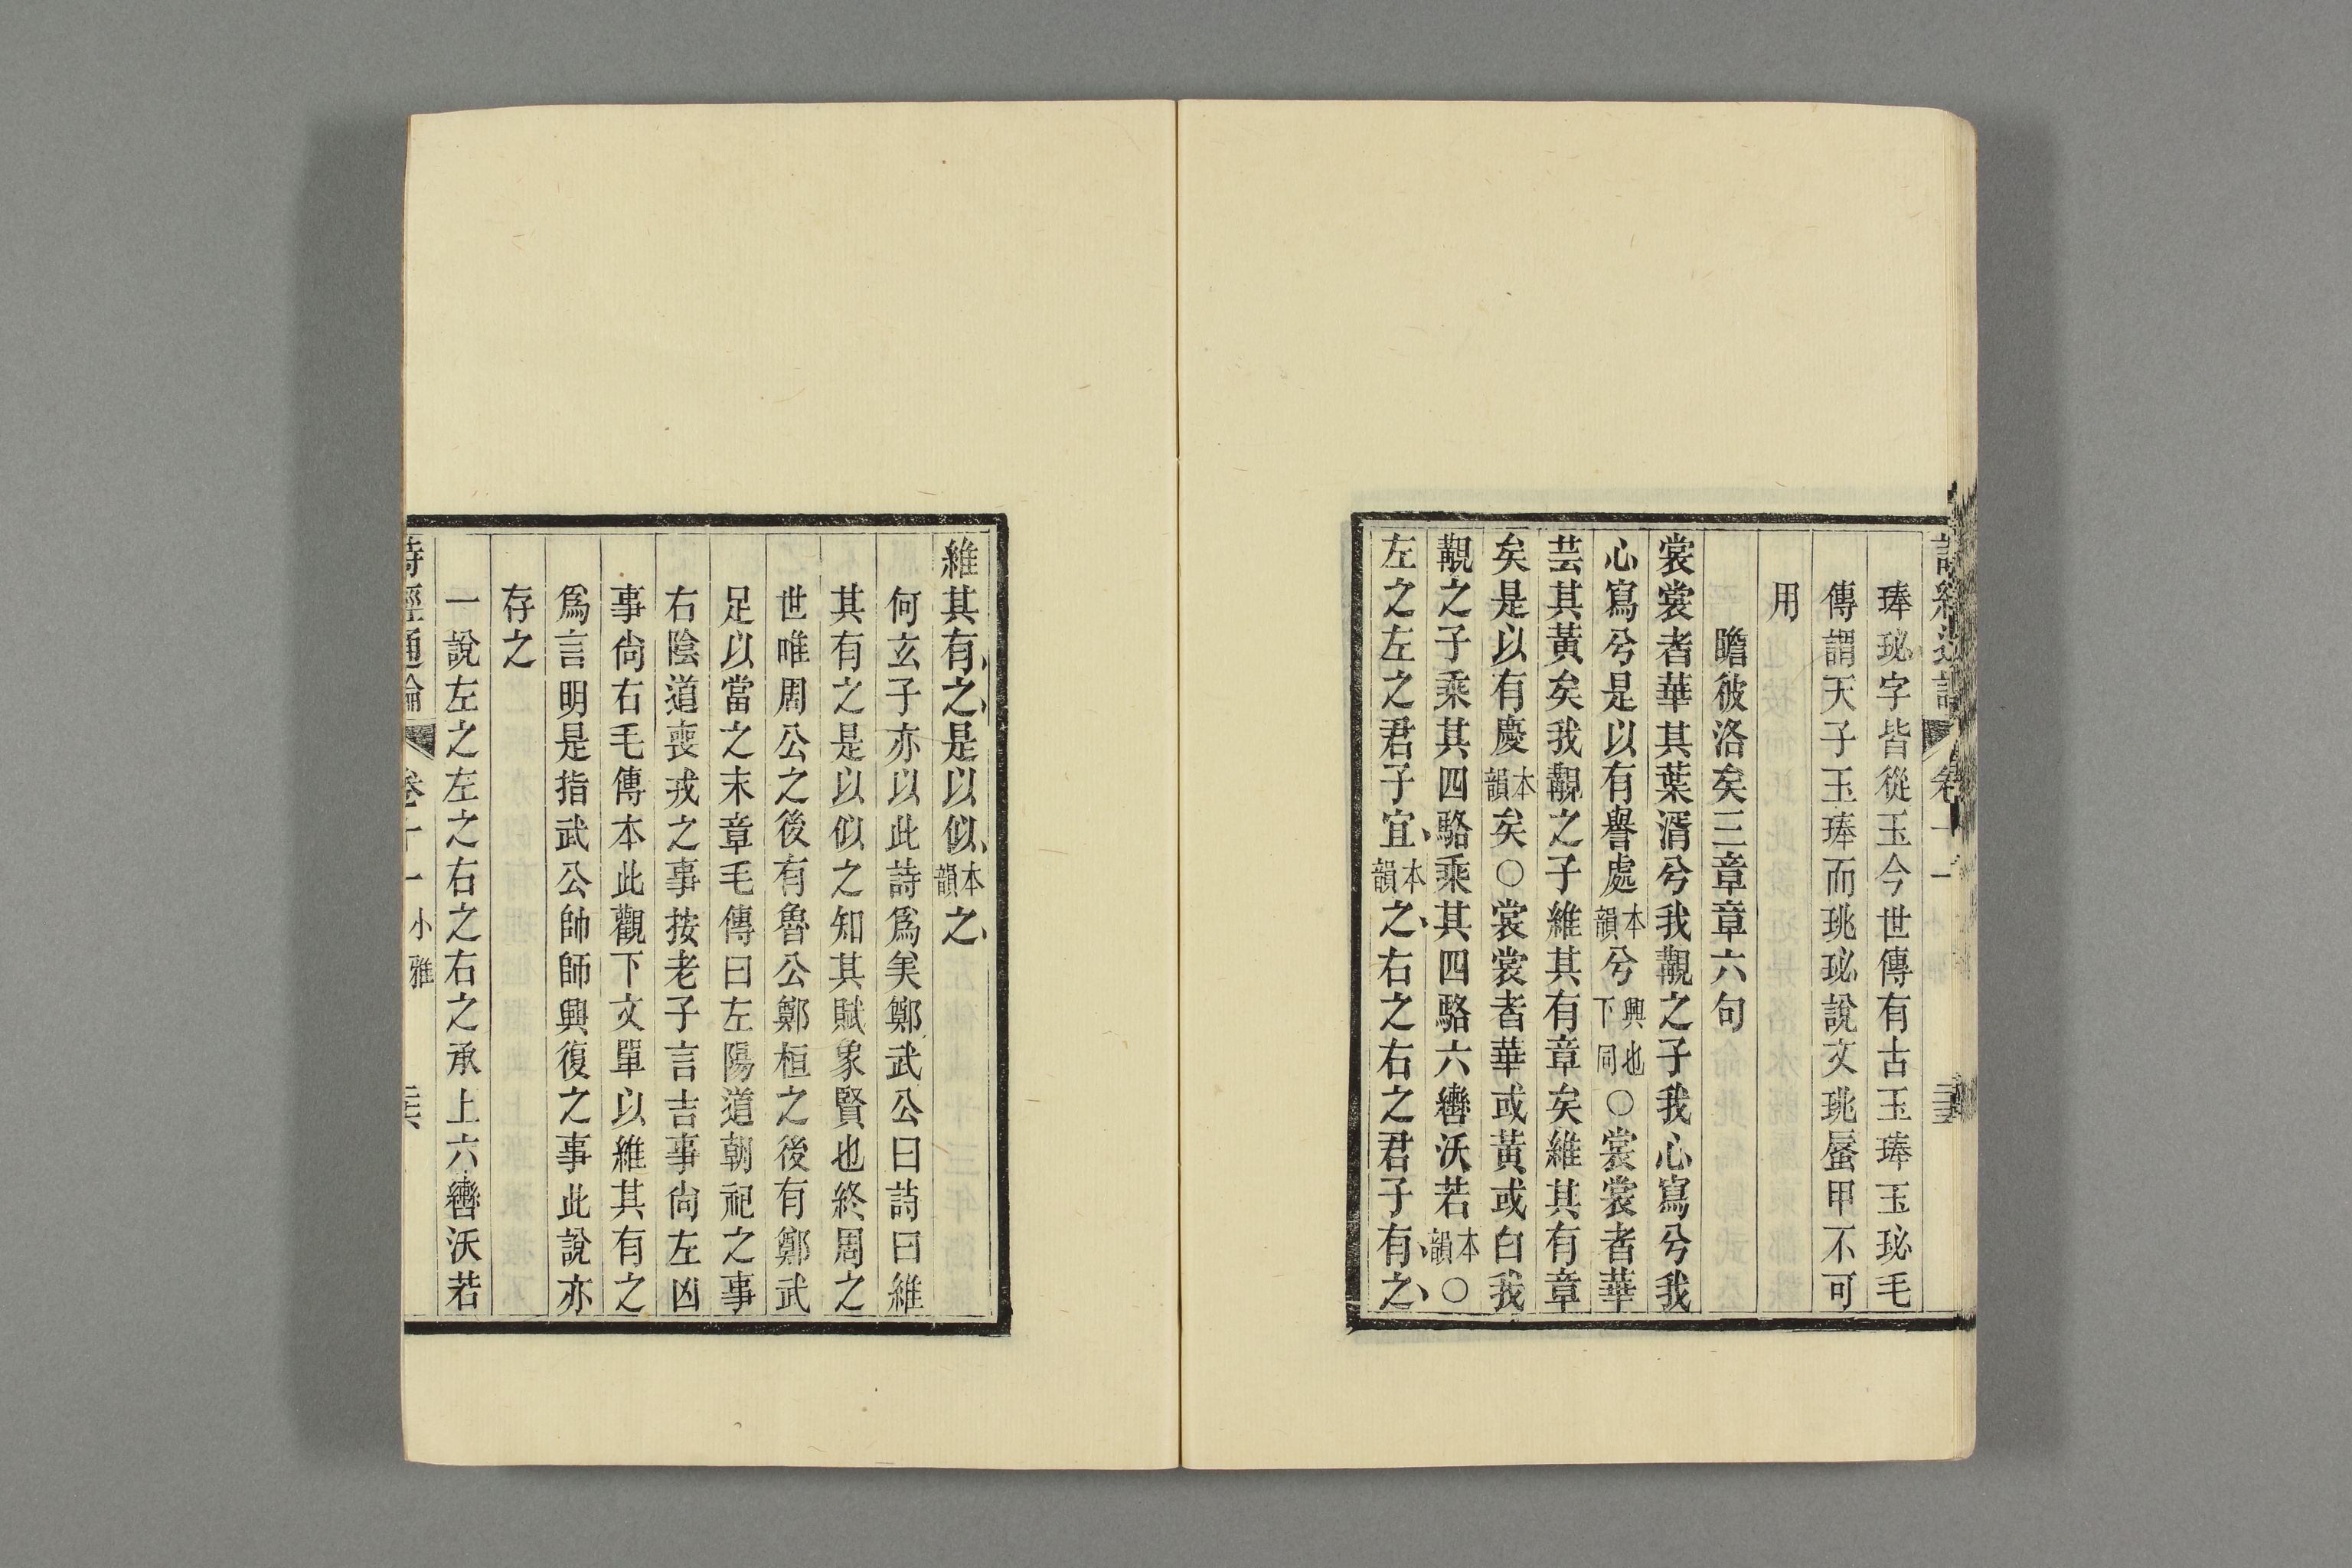 琫珌字皆從玉今世傳有古玉琫玉珌毛
傳謂天子玉琫而珧珌說文珧蜃甲不可
用
瞻彼洛矣三章章六句
裳裳者華其葉湑兮我覯之子我心寫兮我
心寫兮是以有譽處本韻兮興也下同○裳裳者華
芸其黃矣我覯之子維其有章矣維其有章
矣是以有慶本韻矣○裳裳者華或黃或白我
覯之子乘其四駱乘其四駱六轡沃若本韻○
左之左之君子宜本韻之右之右之君子有之
維其有之是以似本韻之
何玄子亦以此詩爲美鄭武公曰詩曰維
其有之是以似之知其賦象賢也終周之
世唯周公之後有魯公鄭桓之後有鄭武
足以當之末章毛傳曰左陽道朝祀之事
右陰道喪戎之事按老子言吉事尙左凶
事尙右毛傳本此觀下文單以維其有之
爲言明是指武公帥師興復之事此說亦
存之
一說左之左之右之右之承上六轡沃若
詩經通論 卷十一 小雅